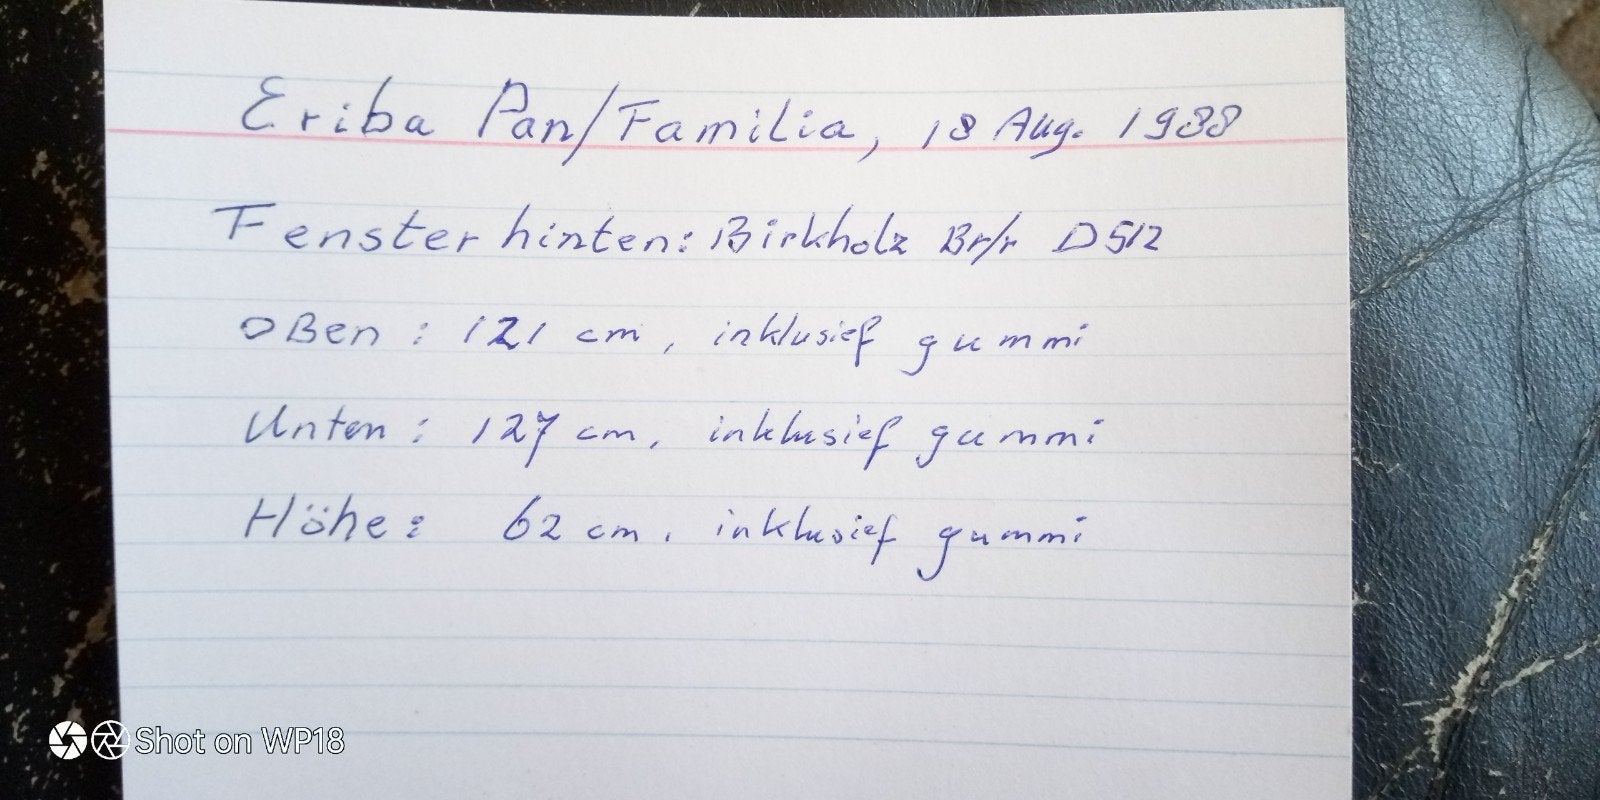 Eriba Pan/Familia, 18 Aug. 1988
Fenster hinten: Birkholz Br/r D512
OBen: 121 cm, inklusief gummi
Unten: 127 cm, inklusief gummi
Höhe: 62 cm, inklusief gummi
Shot on WP18